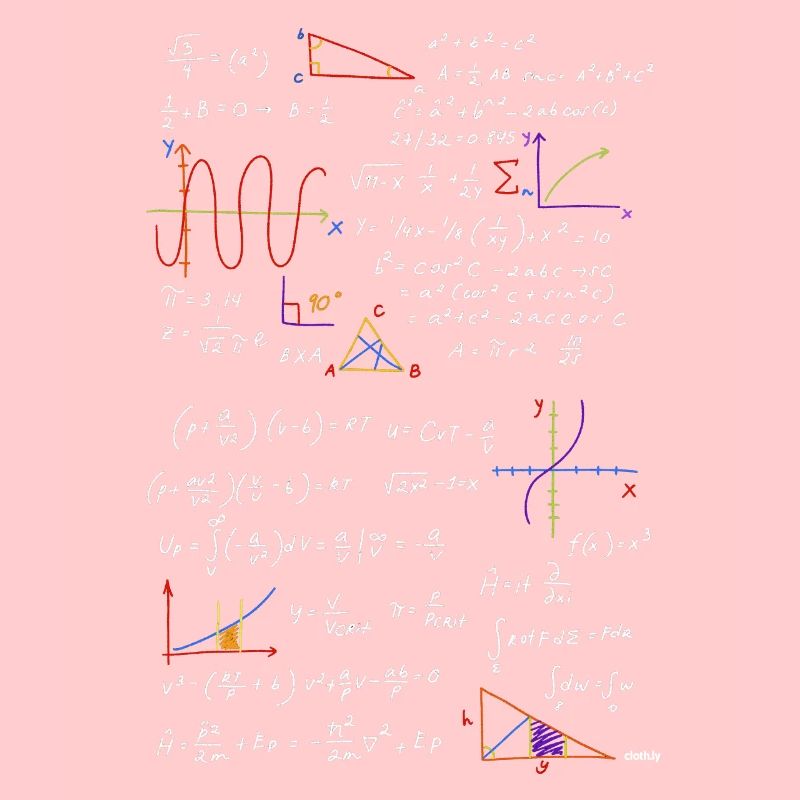 √3/4 = (a²)
b
c
a
a² + b² = c²
A = 1/2 AB sinc = A²+B²+C²
1/2 + B = 0 → B = 1/2
ĉ² = â² + b^² - 2ab cos(c)
27/32 = 0.845
y
x
√11-x 1/x + 1/2y
Σ
y
x
y = 1/4x - 1/8 (1/xy) + x² = 10
b² = cos²C - 2abc → sc
= a² (cos²c + sin²c)
= a² + c² - 2accosC
π = 3,14
90°
B X A
C
A
B
A = πr2
(p + a/v²) (v - b) = RT
u = CvT - a/v
(p + av2/v²) (v/v - b) = kT
√2x² - 1 = x
y
x
f(x) = x³
Up = ∫ ∞ v (-a/v²) dv = a/v |∞ v = -a/v
Ĥ = H ∂/∂xi
y = v/vcrit
π = P/Pcrit
∫Σ Rot F dΣ = Fdr
v³ - (RT/P + b) v² + a/P v - ab/P = 0
∫ dw = ∫ w
Ĥ = p̂²/2m + Ep = -ħ²/2m ∇² + Ep
h
y
cloth.ly